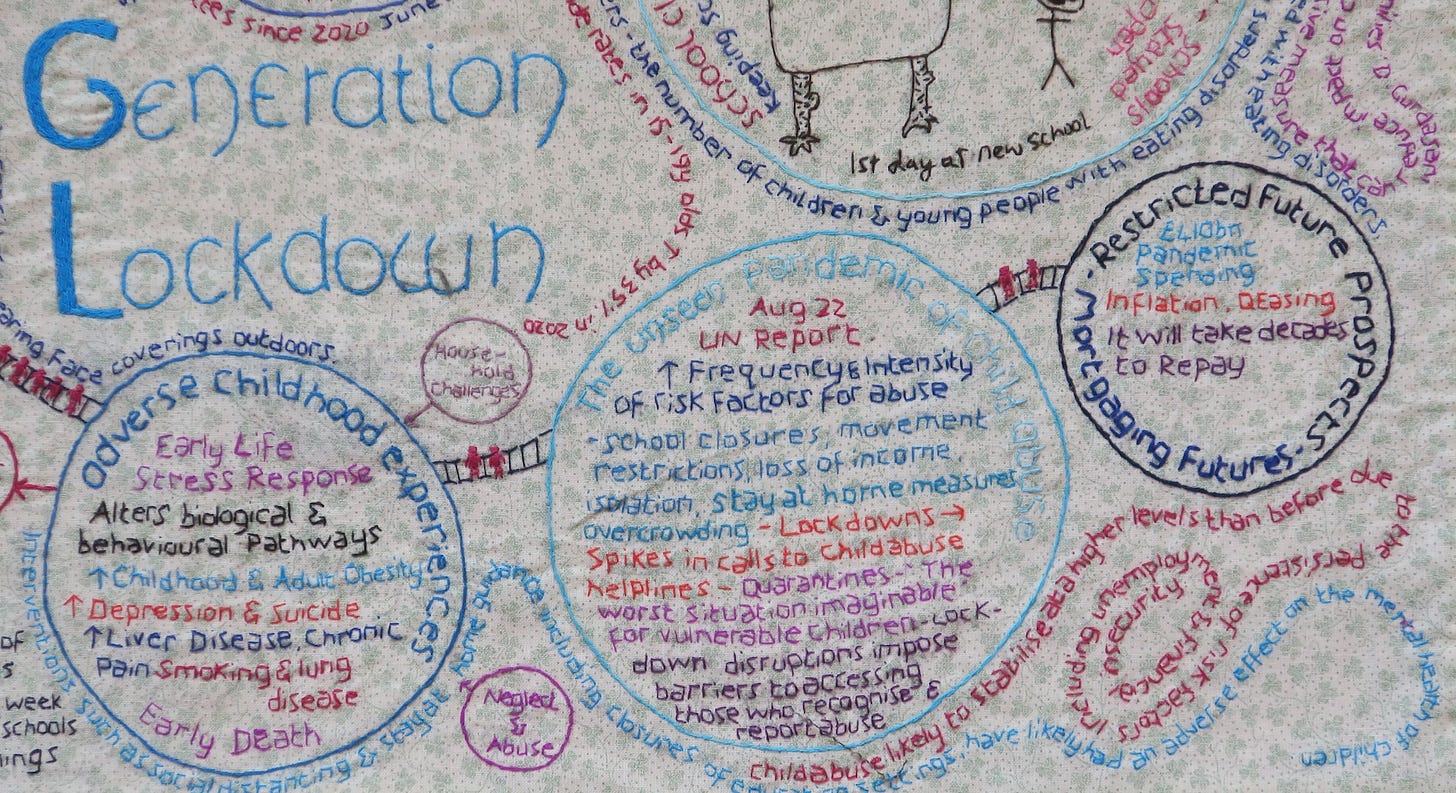 ees since 2020 June
Generation
Lockdown
schools
stayed
open
Keeping
School
1st day at new school
the number of children & young people with eating disorders
eating disorders
D. Gurdasan
measure that can
in 15-19y olds ↑ by 35% in 2020
earing face coverings outdoors.
House-
hold
challenges
Adverse Childhood experiences
Early Life
Stress Response
Alters biological &
behavioural Pathways
↑Childhood & Adult Obesity
↑Depression & Suicide
↑Liver Disease, Chronic
Pain Smoking & lung
disease
Early Death
of
s
week
schools
ings
Interventions such as social distancing & stayat
Neglect
&
Abuse
The unseen pandemic of child abuse
Aug 22
UN Report.
↑ Frequency & Intensity
of risk factors for abuse
-school closures, movement
restrictions, loss of income,
isolation, stay at home measures
overcrowding - Lockdowns →
Spikes in calls to Childabuse
helplines - Quarantines - 'The
worst situation imaginable'
for vulnerable children - Lock-
down disruptions impose
barriers to accessing
those who recognise &
report abuse
Restricted Future Prospects - Mortgaging Futures -
£410bn
Pandemic
Spending
Inflation, QEasing
It will take decades
to Repay
Childabuse likely to stabilise at a higher levels than before due to the persistence of risk factors including unemployment & financial insecurity
including closures of education settings, have likely had an adverse effect on the mental health of children